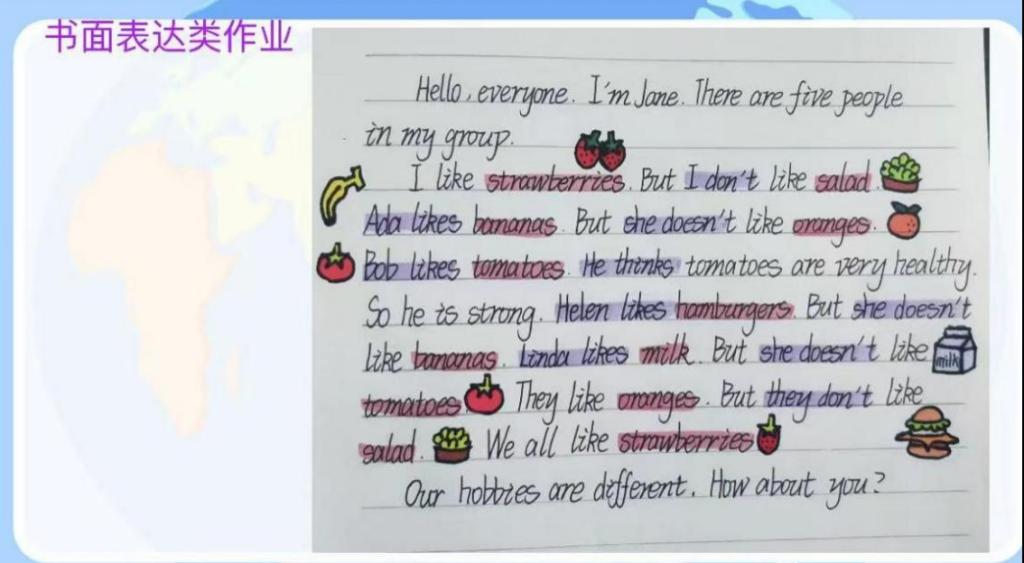 书面表达类作业
Hello, everyone. I'm Jane. There are five people
in my group.
I like strawberries. But I don't like salad.
Ada likes bananas. But she doesn't like oranges.
Bob likes tomatoes. He thinks tomatoes are very healthy.
So he is strong. Helen likes hamburgers. But she doesn't
like bananas. Linda likes milk. But she doesn't like
milk
tomatoes. They like oranges. But they don't like
salad. We all like strawberries
Our hobbies are different. How about you?